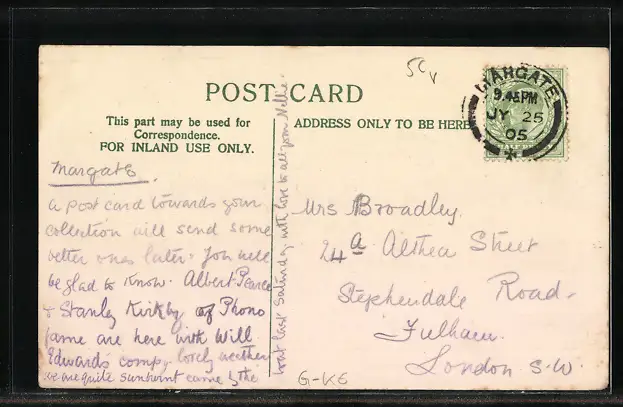 POST CARD
This part may be used for
Correspondence.
FOR INLAND USE ONLY.
ADDRESS ONLY TO BE HERE
MARGATE
9.45PM
JY 25
05
Margate.
A post card towards your
collection will send some
better ones later. You will
be glad to know. Albert Pearce
& Stanley Kirkby of Phono
fame are here with Will
Edwards compy. lovely weather
we are quite sunburnt came by the
boat last Saturday with love to all from Nellie.
Mrs Broadley
24a Althea Street
Stephendale Road.
Fulham.
London S.W.
G-KE